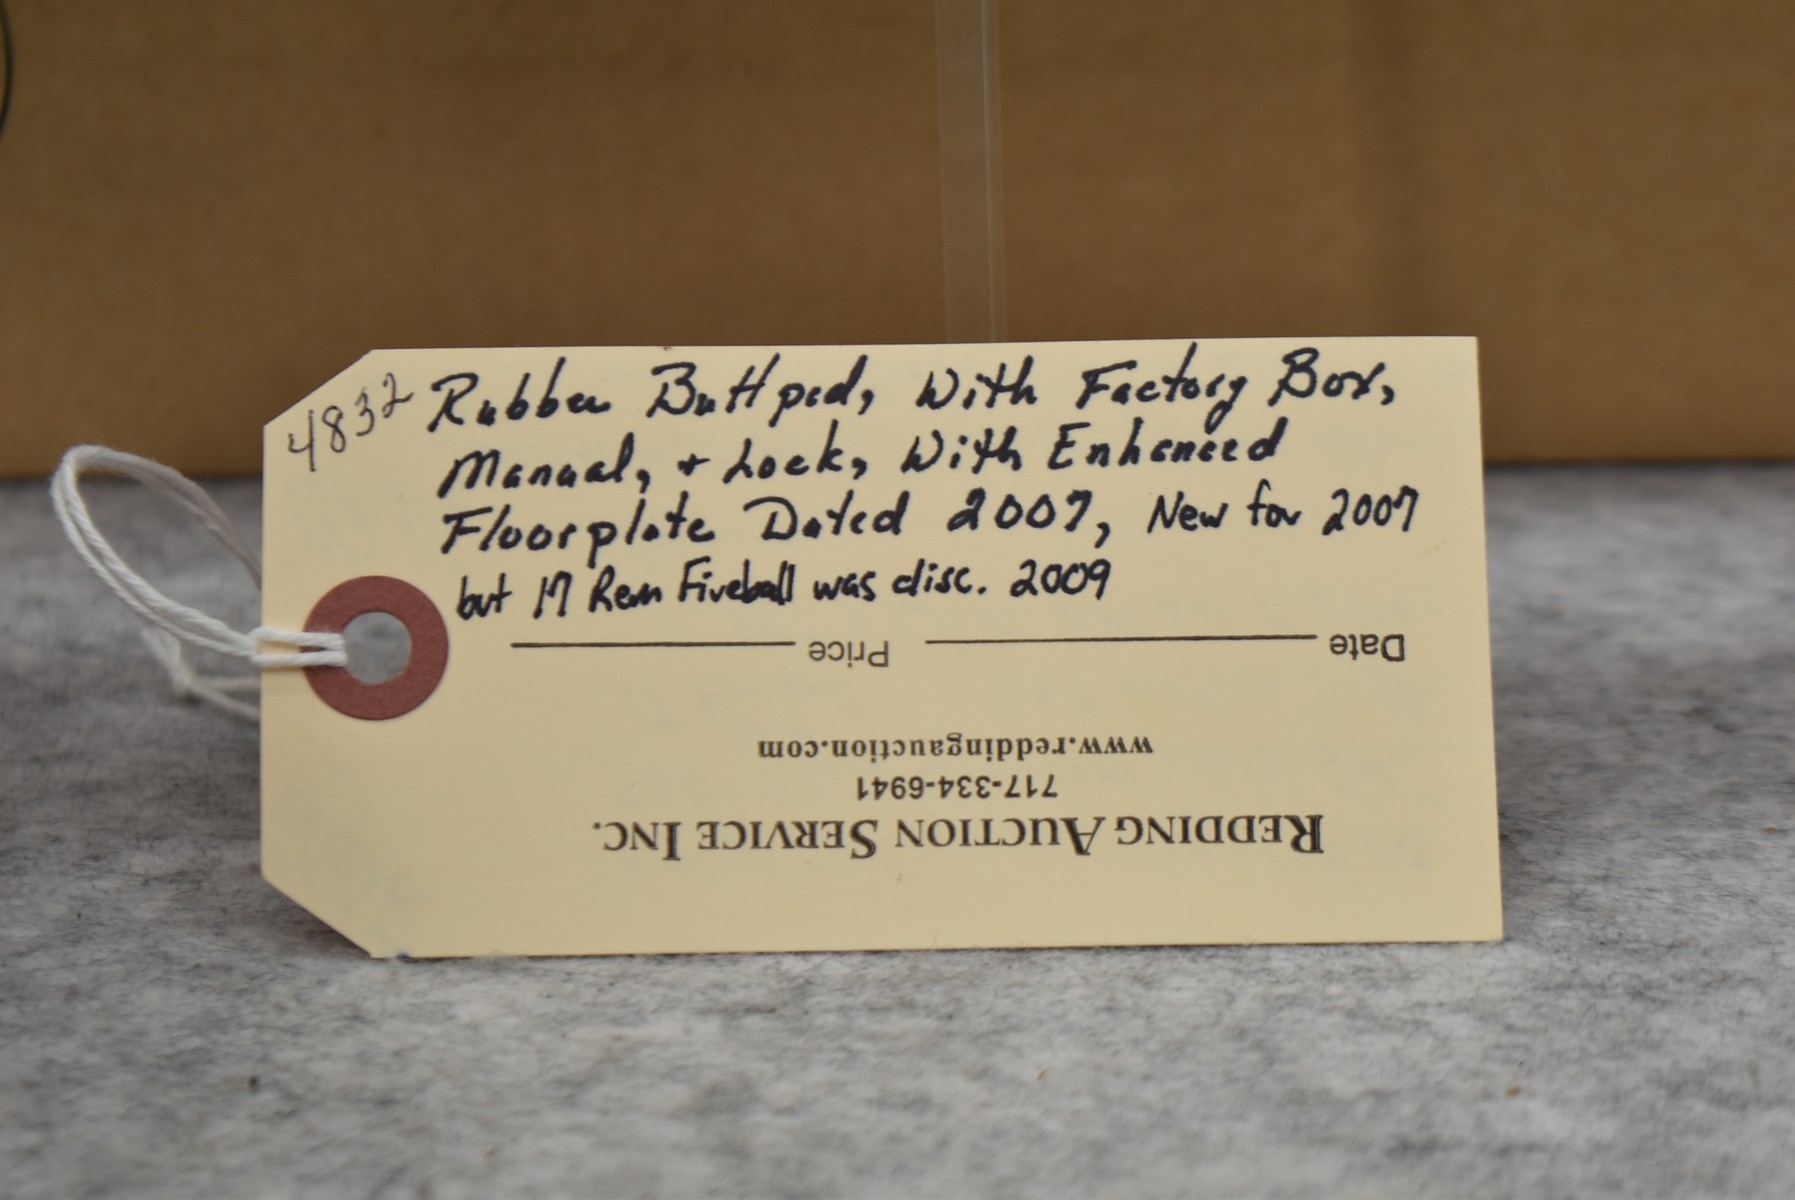 4832
Rubber Buttpad, With Factory Box,
Manual, + Lock, With Enhanced
Floorplate Dated 2007, New for 2007
but 17 Rem Fireball was disc. 2009
Date Price
www.reddingauction.com
717-334-6941
REDDING AUCTION SERVICE INC.